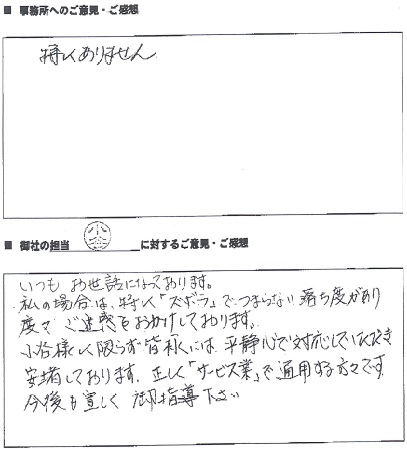 ■ 事務所へのご意見・ご感想
特にありません
■ 御社の担当 小谷 に対するご意見・ご感想
いつも お世話になっております。
私の場合は、特に「ズボラ」で、つまらない落ち度があり
度々 ご迷惑をおかけしております。
小谷様に限らず皆様には、平静心で対応していただき
安堵しております。正しく「サービス業」で通用する方々です
今後も宜しく 御指導下さい